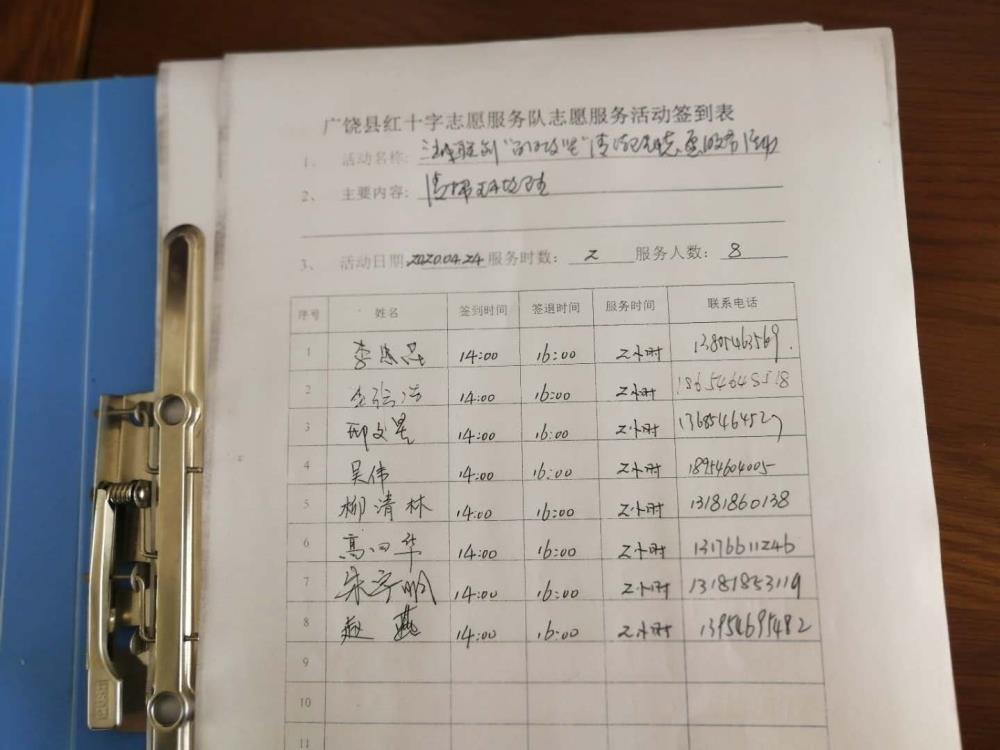 广饶县红十字志愿服务队志愿服务活动签到表
1、 活动名称: 志愿服务活动
2、 主要内容: 清扫
3、 活动日期 2020.04.24 服务时数: 2 服务人数: 8
序号 姓名 签到时间 签退时间 服务时间 联系电话
1 李 14:00 16:00 2小时 13805463569.
2 14:00 16:00 2小时 18654648518
3 邢文星 14:00 16:00 2小时 13685464527
4 吴伟 14:00 16:00 2小时 18954604005
5 柳清林 14:00 16:00 2小时 13181860138
6 高 华 14:00 16:00 2小时 13176611246
7 宋 明 14:00 16:00 2小时 13181853119
8 赵燕 14:00 16:00 2小时 13954695482
9
10
11